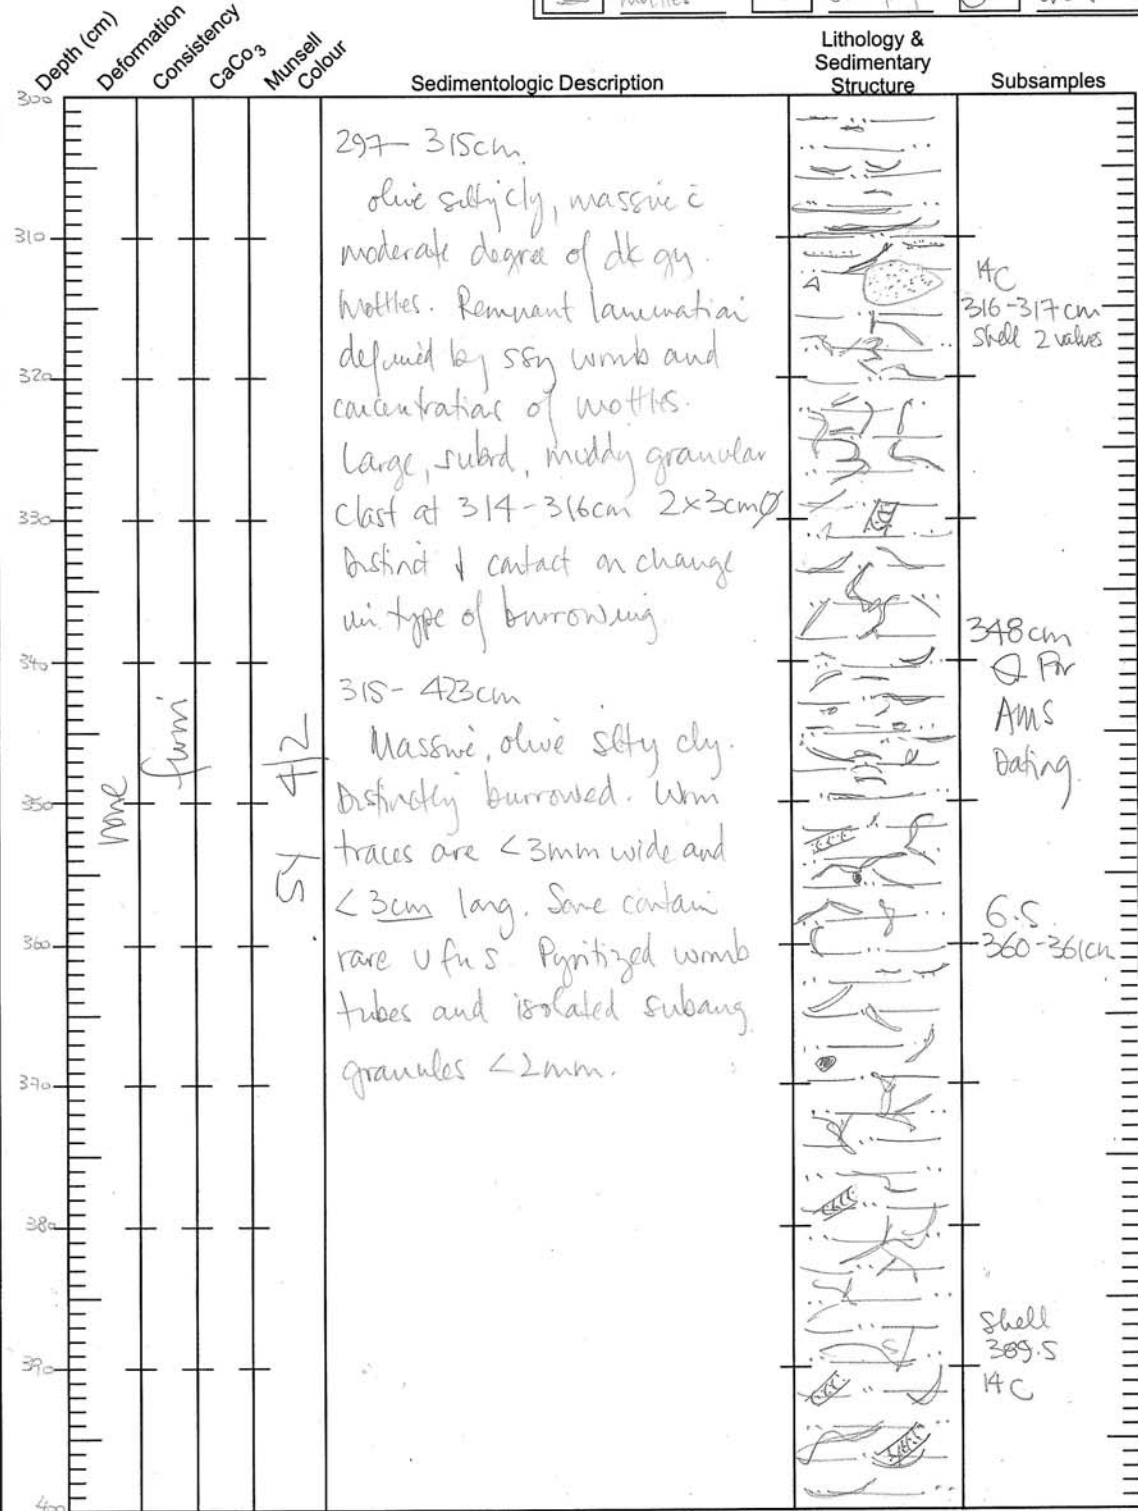 mottles
Depth (cm)
Deformation
Consistency
CaCo3
Munsell
Colour
Sedimentologic Description
Lithology &
Sedimentary
Structure
Subsamples
300
310
320
330
340
350
360
370
380
390
400
none
firm
5Y 4/2
297-315cm
olive silty cly, massive c̄
moderate degree of dk gy
mottles. Remnant lamination
defined by ssy womb and
concentrations of mottles.
Large, subrd, muddy granular
clast at 314-316cm 2x3cmØ
Distinct ↓ contact on change
in type of burrowing
315-423cm
Massive, olive slty cly.
Distinctly burrowed. Wrm
traces are <3mm wide and
<3cm long. Some contain
rare v fn s. Pyritized womb
tubes and isolated subang
granules <2mm.
14C
316-317cm
Shell 2 valves
348cm
For
AMS
Dating
G.S.
360-361cm
Shell
389.5
14C